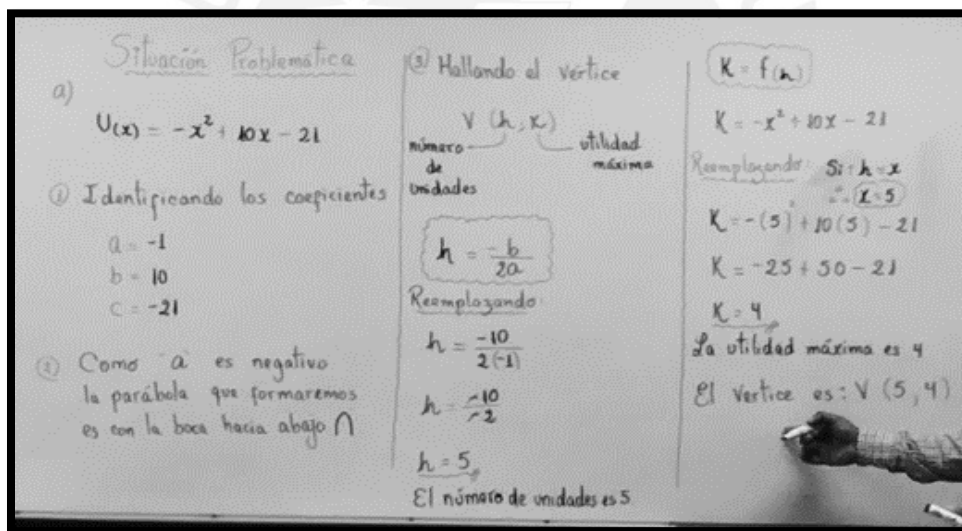 Situación Problemática
a)
U(x) = -x² + 10x - 21
① Identificando los coeficientes
a = -1
b = 10
c = -21
② Como "a" es negativo
la parábola que formaremos
es con la boca hacia abajo ∩
③ Hallando el vértice
V (h, k)
número de unidades
utilidad máxima
h = -b/2a
Reemplazando:
h = -10/2(-1)
h = -10/-2
h = 5
El número de unidades es 5
K = f(h)
K = -x² + 10x - 21
Reemplazando: Si: h = x
∴ x = 5
K = -(5)² + 10(5) - 21
K = -25 + 50 - 21
K = 4
La utilidad máxima es 4
El Vertice es: V (5, 4)